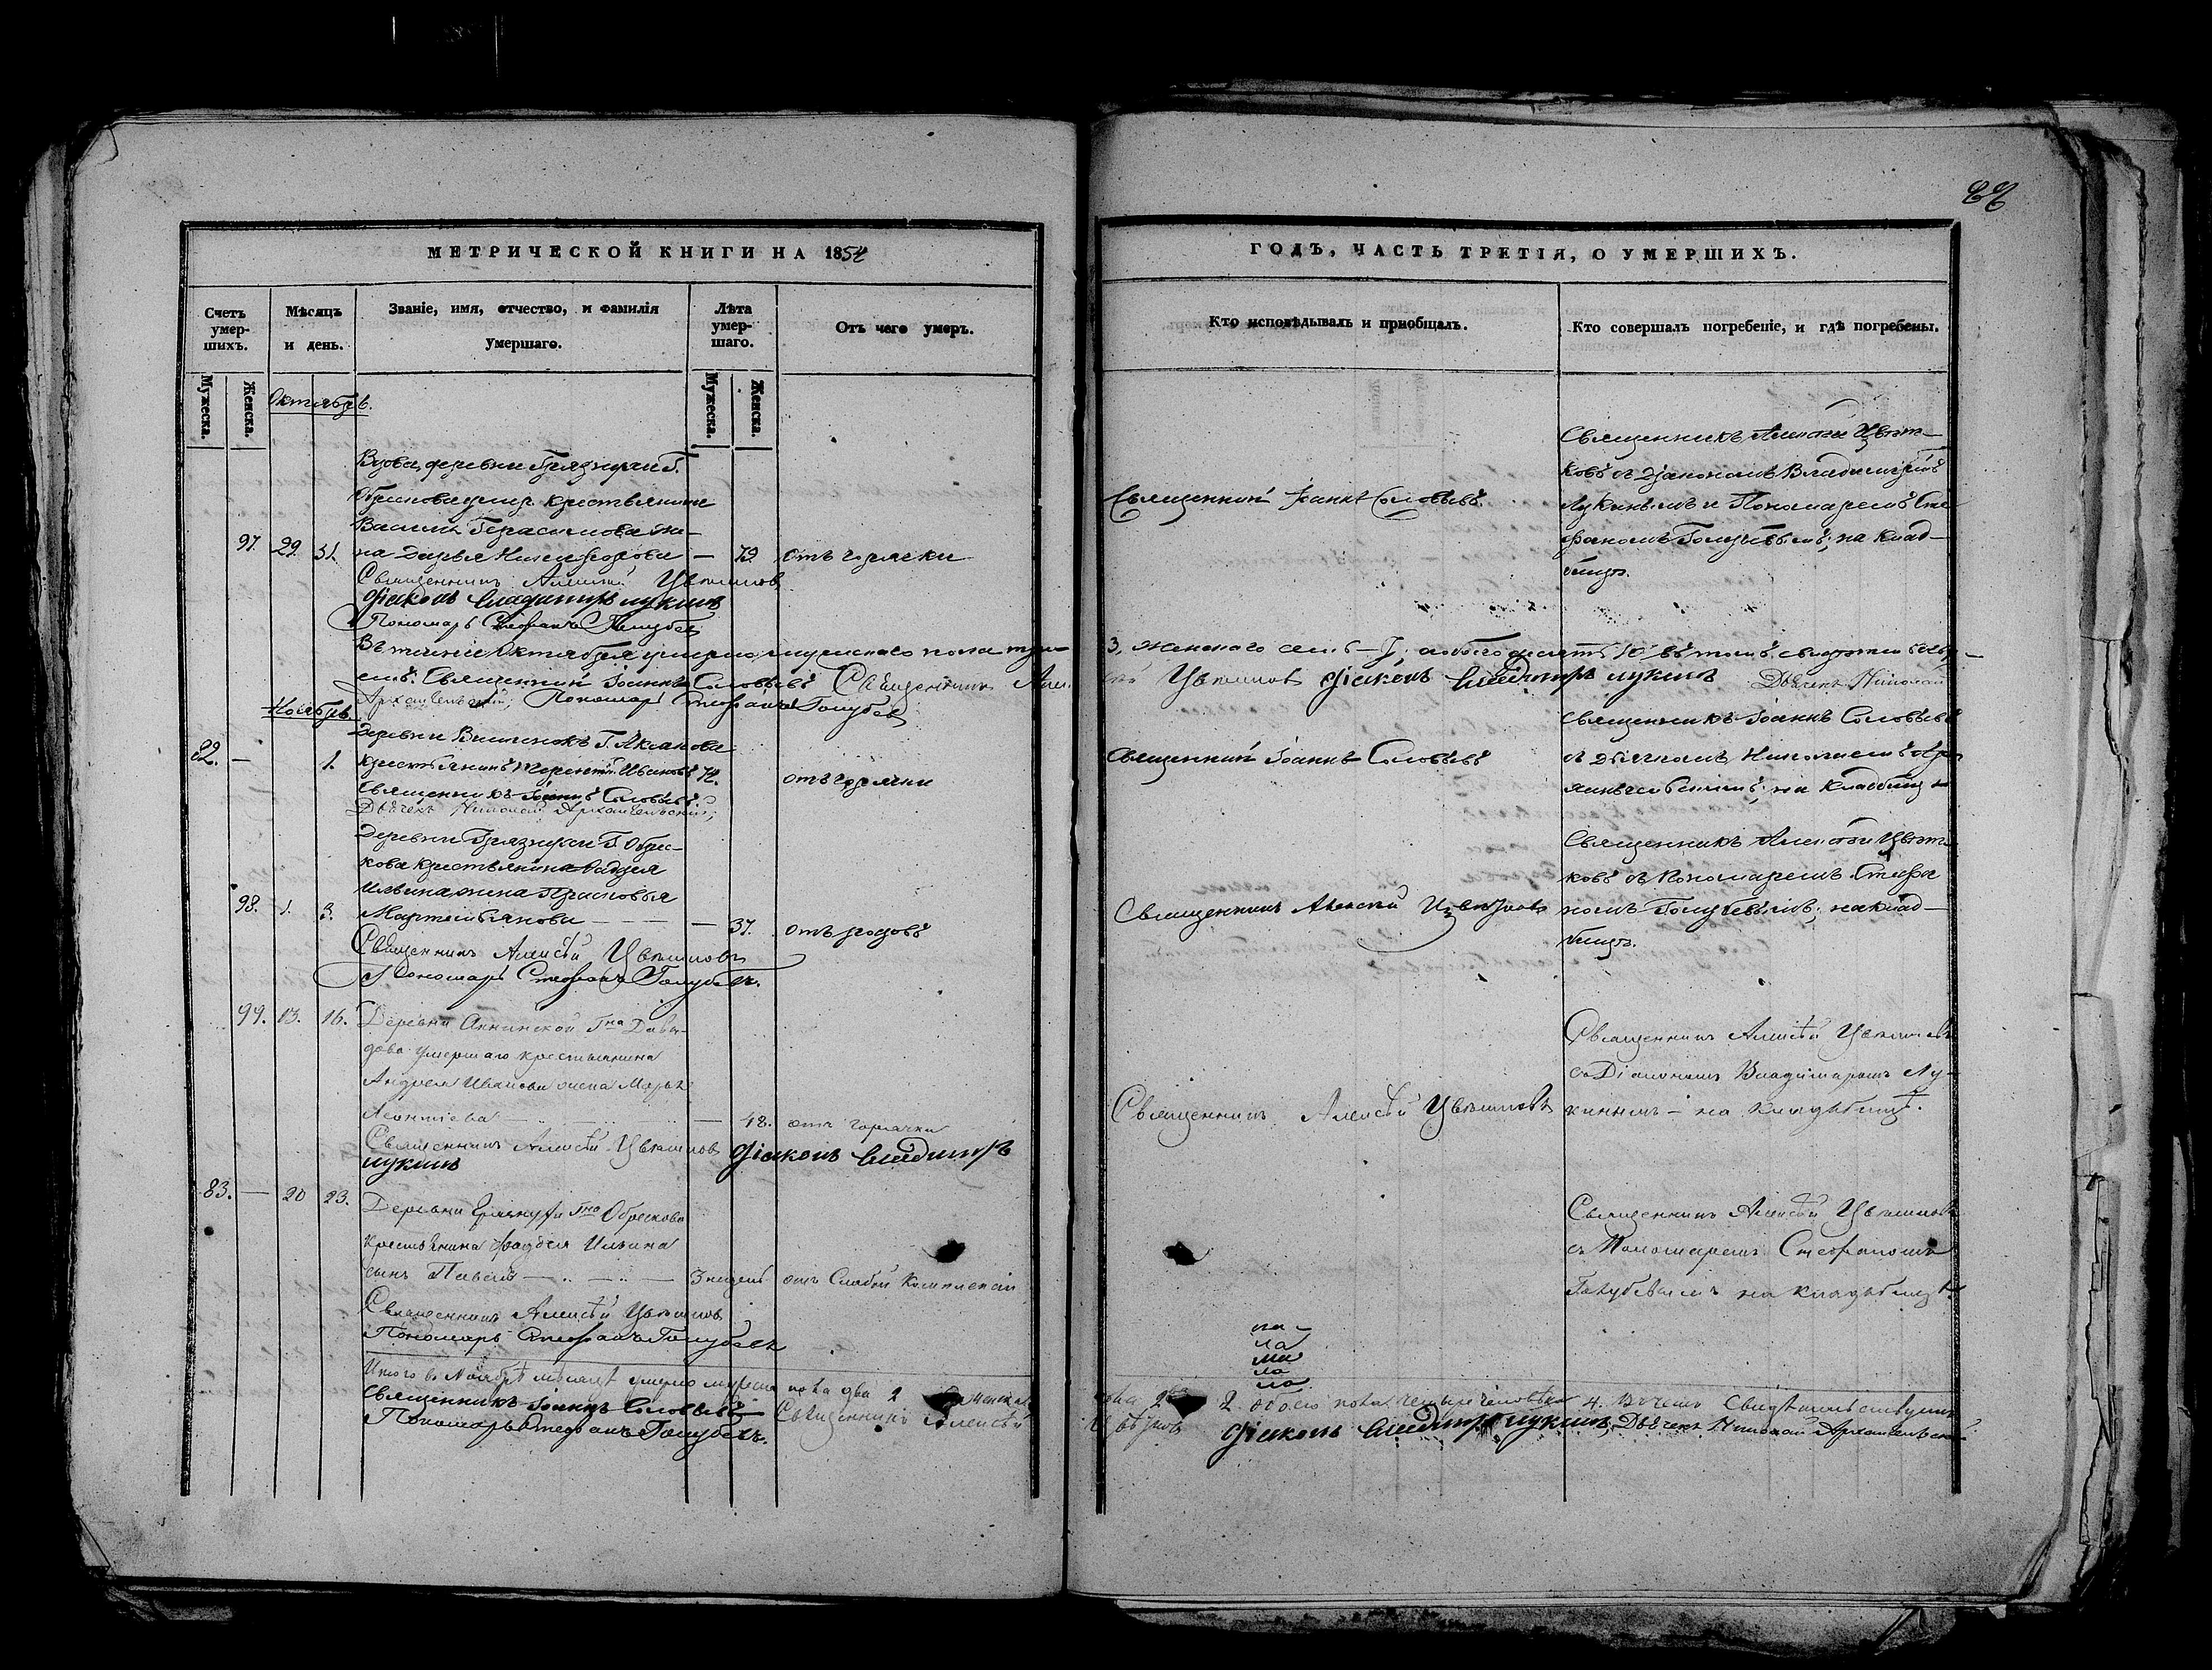 88
МЕТРИЧЕСКОЙ КНИГИ НА 1854
ГОДЪ, ЧАСТЬ ТРЕТІЯ, О УМЕРШИХЪ.
Счетъ умер-
шихъ.
Мѣсяцъ
и день.
Званіе, имя, отчество, и фамилія
умершаго.
Лѣта
умер-
шаго.
Отъ чего умеръ.
Кто исповѣдывалъ и пріобщалъ.
Кто совершалъ погребеніе, и гдѣ погребены.
Мужеска.
Женска.
Мужеска.
Женска.
Октябрь.
Вдова, деревни Грязнухи Г.
Обрескова умер. крестьянина
Василія Герасимова же-
97. 29. 31. на Дарья Никифорова — 79. отъ горячки
Священникъ Алексій Цвѣтковъ
Діаконъ Владимиръ Лукинъ
Пономарь Стефанъ Голубевъ
Священникъ Іоаннъ Соловьевъ
Священникъ Алексій Цвѣт-
ковъ съ Діакономъ Владиміромъ
Лукинымъ и Пономаремъ Сте-
фаномъ Голубевымъ; на клад-
бищѣ.
Въ теченіе Октября умерло мужескаго пола три-
3, женскаго семь-7, обоего десять 10
Священникъ Іоаннъ Соловьевъ Священникъ Алек.
Цвѣтковъ Діаконъ Владимиръ Лукинъ Дьячекъ Николай
Архангельскій, Пономарь Стефанъ Голубев
Ноябрь
Деревни Г.
82. — 1. крестьянинъ Терентій Ивановъ 74. отъ горячки
Священникъ Іоаннъ Соловьевъ
Дьячекъ Николай Архангельскій;
Священникъ Іоаннъ Соловьевъ
Священникъ Іоаннъ Соловьевъ
съ Дьячкомъ Николаемъ Ар-
хангельскимъ; на кладбищѣ
Деревни Грязнухи Г. Обрес-
кова крестьянина Фаддея
Ильина жена Прасковья
98. 1. 3. Мартемьянова — — 37. отъ родовъ
Священникъ Алексѣй Цвѣтковъ
Пономарь Стефанъ Голубевъ.
Священникъ Алексѣй Цвѣтковъ
Священникъ Алексѣй Цвѣт-
ковъ съ Пономаремъ Стефа
номъ Голубевымъ; на клад-
бищѣ.
99. 13. 16. Деревни Аннинской Гна Давы-
дова умершаго крестьянина
Андрея Иванова жена Марья
Леонтіева — 48. отъ горячки
Священникъ Алексѣй Цвѣтковъ Діаконъ Владимиръ
Лукинъ
Священникъ Алексѣй Цвѣтковъ
Священникъ Алексѣй Цвѣтковъ
съ Діакономъ Владимиромъ Лу-
кинымъ - на кладбищѣ.
83. — 20 23. Деревни Грязнухи Гна Обрескова
крестьянина Фаддея Ильина
сынъ Павелъ — 3 недѣль отъ слабой комплекціи
Священникъ Алексѣй Цвѣтковъ
Пономарь Стефанъ Голубевъ
Священникъ Алексѣй Цвѣтковъ
съ Пономаремъ Стефаномъ
Голубевымъ на кладбищѣ.
Итого въ Ноябрѣ мѣсяцѣ умерло мужеска пола два 2 женска
пола два 2 обоего пола четыре человѣка 4. В чемъ свидѣтельствуемъ
Священникъ Іоаннъ Соловьевъ Священникъ Алексѣй
Цвѣтковъ Діаконъ Владимиръ Лукинъ, Дьячекъ Николай Архангельскій
Пономарь Стефанъ Голубевъ.